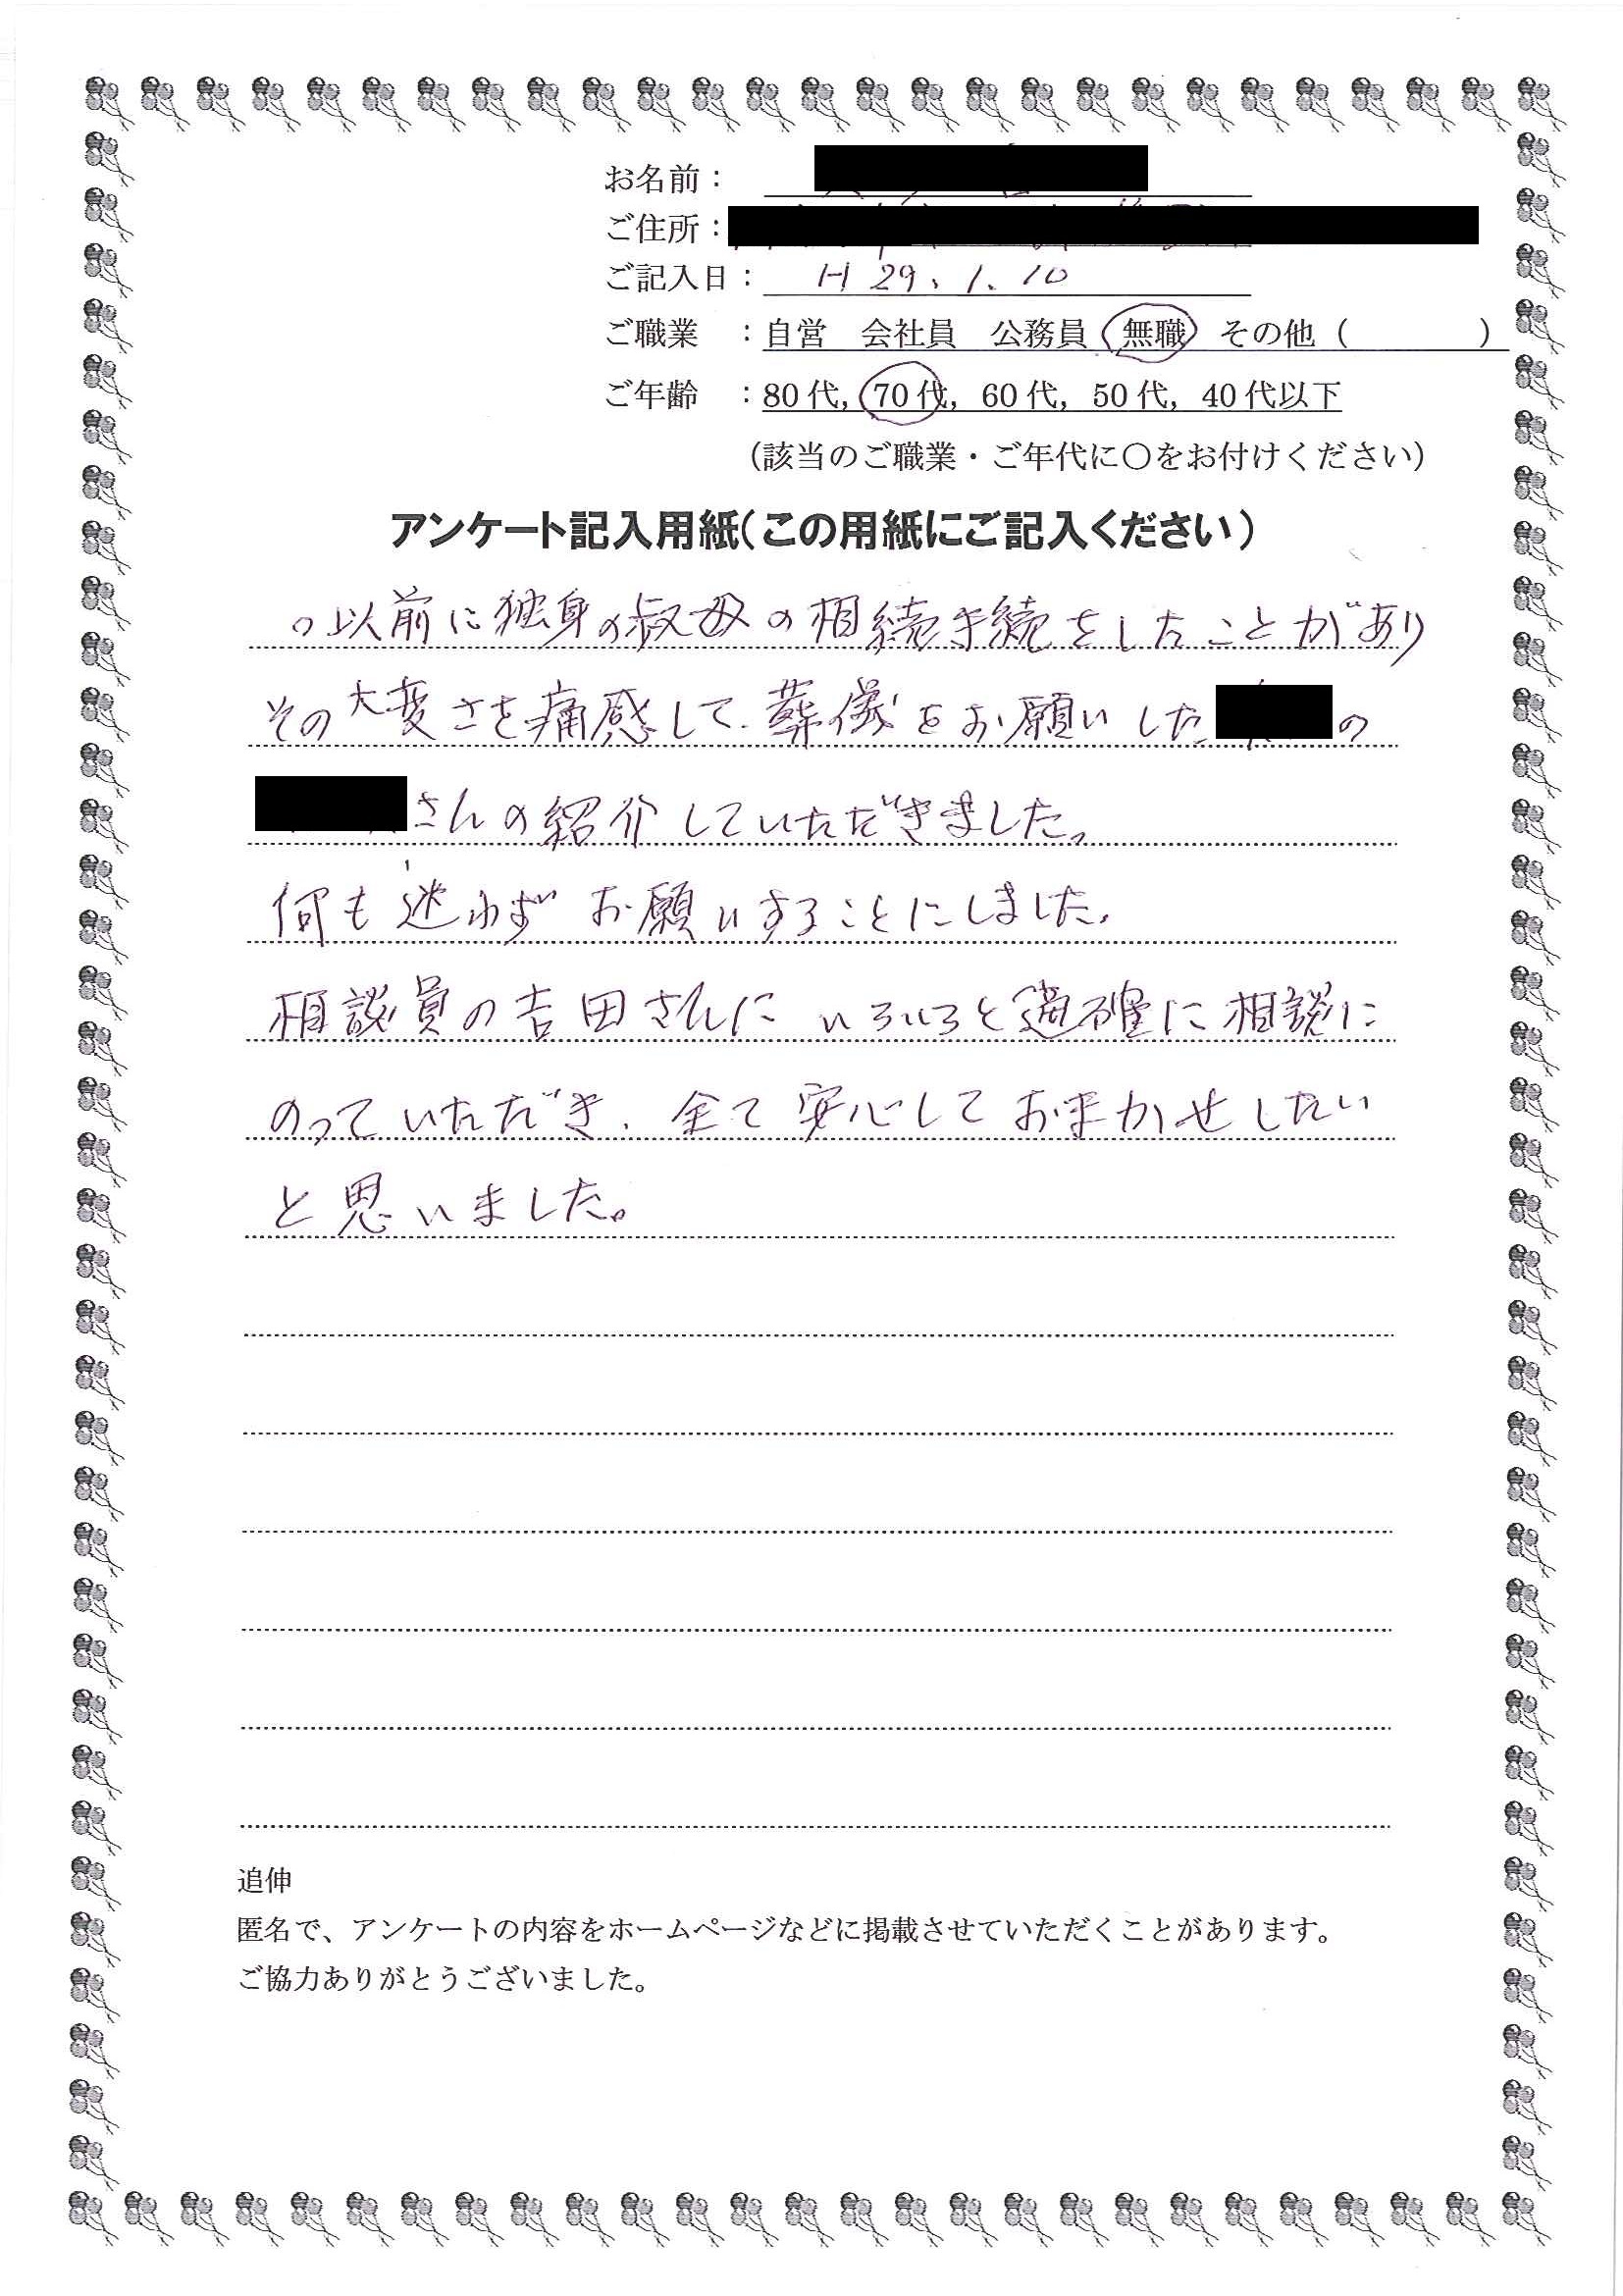 お名前：
ご住所：
ご記入日： H29、1.10
ご職業 ：自営 会社員 公務員 無職 その他（ ）
ご年齢 ：80代，70代，60代，50代，40代以下
（該当のご職業・ご年代に〇をお付けください）
アンケート記入用紙（この用紙にご記入ください）
。以前に独身の叔母の相続手続をしたことがあり
その大変さを痛感して、葬儀をお願いしたの
さんの紹介していただきました。
何も迷わずお願いすることにしました。
相談員の吉田さんにいろいろと適確に相談に
のっていただき、全て安心しておまかせしたい
と思いました。
追伸
匿名で、アンケートの内容をホームページなどに掲載させていただくことがあります。
ご協力ありがとうございました。